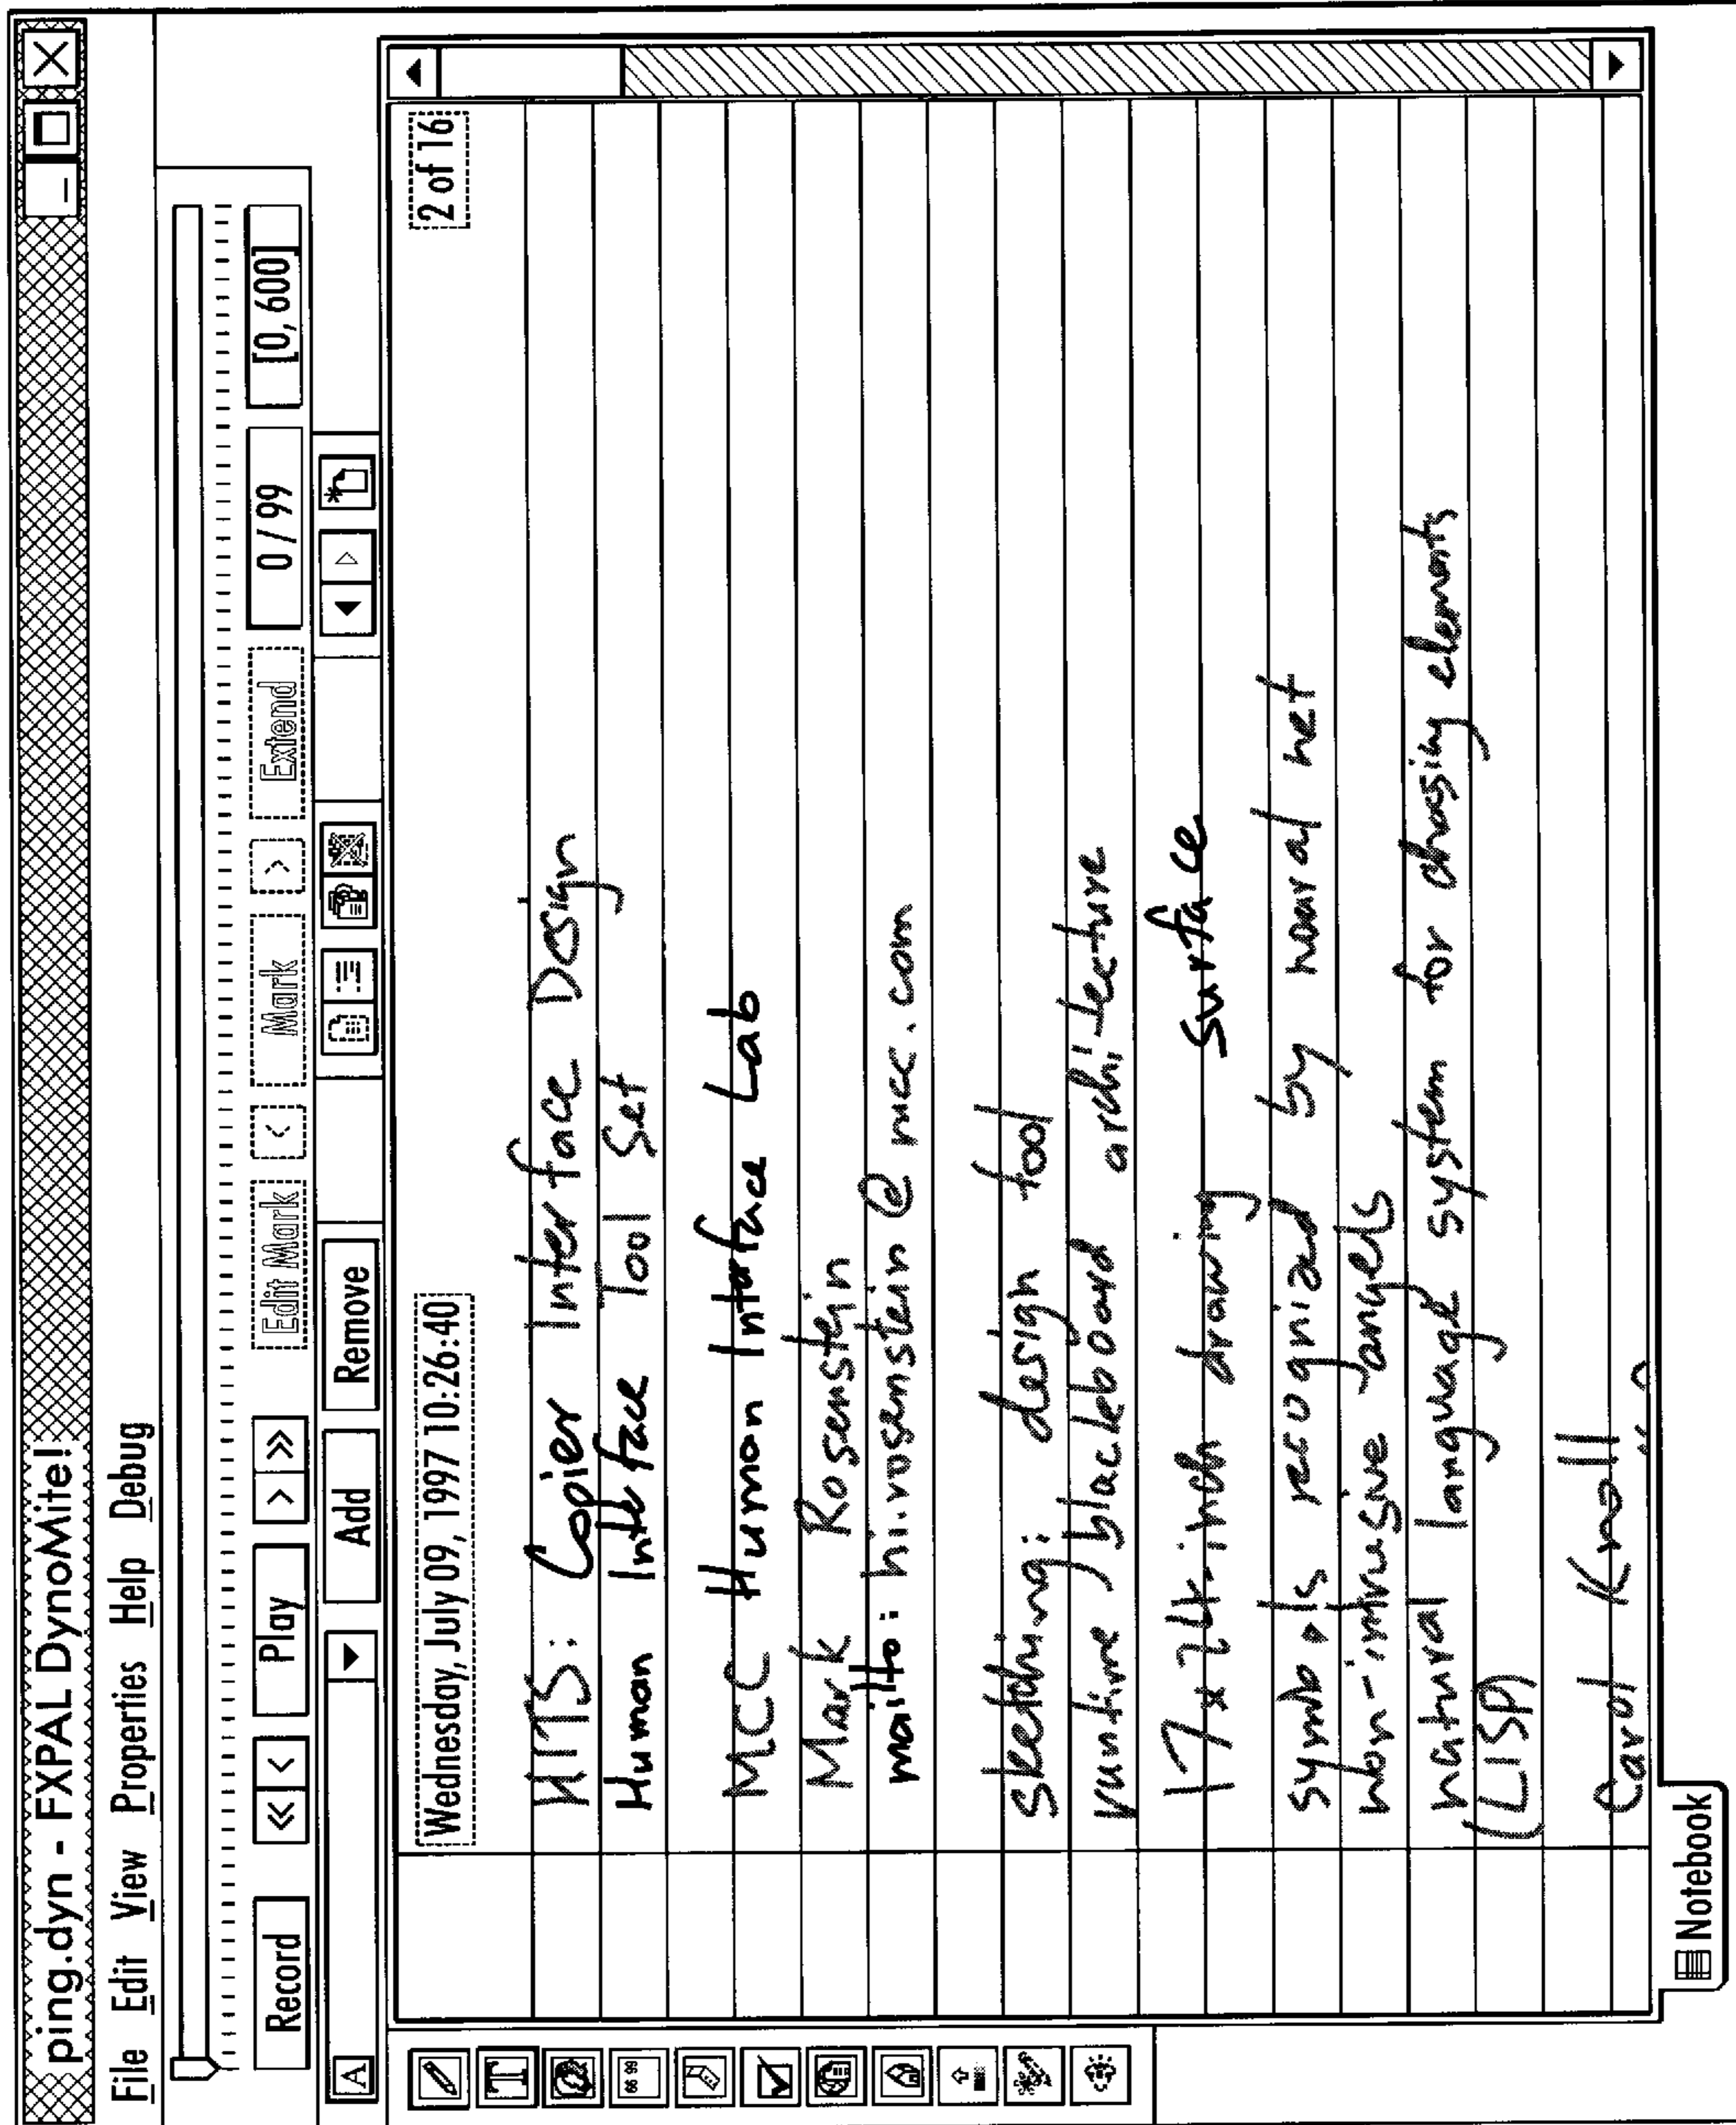 ping.dyn - FXPAL DynoMite!
File Edit View Properties Help Debug
Record << < Play > >> Edit Mark < Mark > Extend 0 / 99 [0, 600]
A Add Remove
Wednesday, July 09, 1997 10:26:40 2 of 16
HITS: Copier Interface Design
Human Interface Tool Set
MCC Human Interface Lab
Mark Rosenstein
mailto: hi.rosenstein@mcc.com
sketching: design tool
runtime / blackboard architecture
17 x 24-inch drawing surface
symbols recognized by neural net
non-intrusive "angels
natural language system for choosing elements
(LISP)
Carol Knoll
Notebook